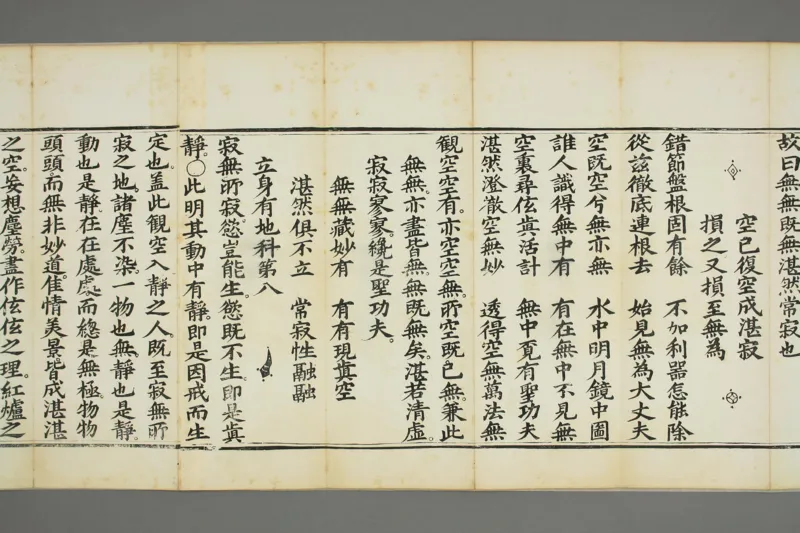 故曰無無既無湛然常寂也
空已復空成湛寂
損之又損至無為
錯節盤根固有餘　不加利器怎能除
從兹徹底連根去　始見無為大丈夫
空既空兮無亦無　水中明月鏡中圖
誰人識得無中有　有在無中不見無
空裏尋伭眞活計　無中覓有聖功夫
湛然澄澈空無妙　透得空無萬法無
觀空空有。亦空空無。所空既已無。兼此
無無。亦盡皆無。無既無矣。湛若清虛。
寂寂寥寥。纔是聖功夫。
無無藏妙有　有有現眞空
湛然俱不立　常寂性融融
立身有地科第八
寂無所寂。慾豈能生。慾既不生。即是眞
靜。○此明其動中有靜。即是因戒而生
定也。盖此觀空入靜之人。既至寂無所
寂之地。諸塵不染。一物也無。靜也是靜。
動也是靜。在在處處。而緫是無極。物物
頭頭。而無非妙道。佳情美景。皆成湛湛
之空。妄想塵勞。盡作伭伭之理。紅爐之